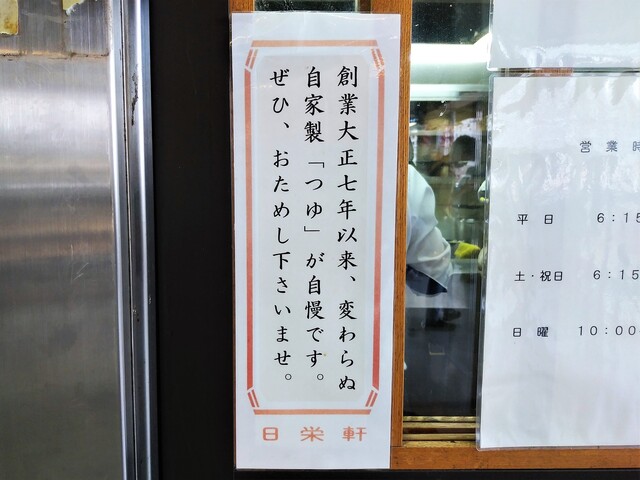 創業大正七年以来、変わらぬ
自家製「つゆ」が自慢です。
ぜひ、おためし下さいませ。
日栄軒
営業時
平日 6:15
土・祝日 6:15
日曜 10:00